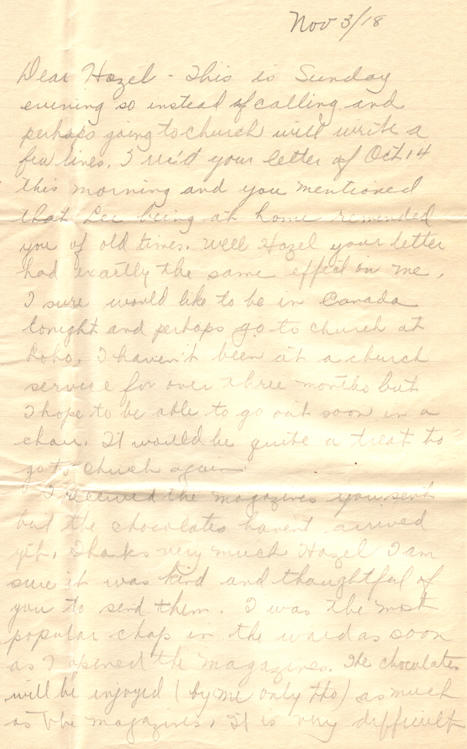 Nov 3/18
Dear Hazel - This is Sunday
evening so instead of calling and
perhaps going to church will write a
few lines. I rec'd your letter of Oct 14
this morning and you mentioned
that Lee being at home reminded
you of old times. Well Hazel your letter
had exactly the same effect on me.
I sure would like to be in Canada
tonight and perhaps go to church at
Lobo. I haven't been at a church
service for over three months but
I hope to be able to go out soon in a
chair. It would be quite a treat to
go to church again.
I received the magazines you sent
but the chocolates havent arrived
yet. Thanks very much Hazel I am
sure it was kind and thoughtful of
you to send them. I was the most
popular chap in the ward as soon
as I opened the magazines. The chocolates
will be injoyed (by me only tho) as much
as the magazines. It is very difficult